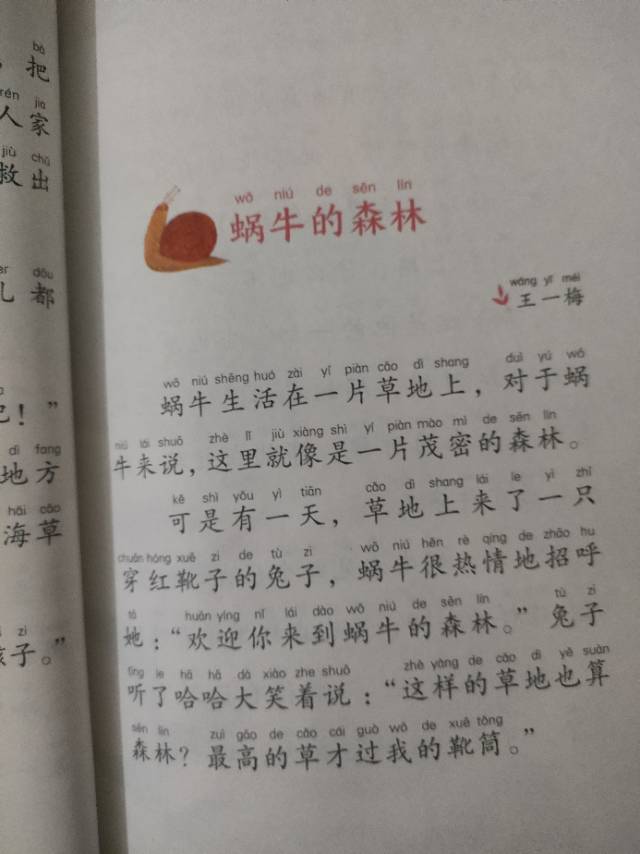 bǎ
，把
rén jia
人家
jiù chū
救出
dōu
儿都
吧！”
dì fang
地方
hǎi cǎo
海草
zi
孩子。”
wō niú de sēn lín
蜗牛的森林
wáng yī méi
王一梅
wō niú shēng huó zài yí piàn cǎo dì shang duì yú wō
蜗牛生活在一片草地上，对于蜗
niú lái shuō zhè lǐ jiù xiàng shì yí piàn mào mì de sēn lín
牛来说，这里就像是一片茂密的森林。
kě shì yǒu yì tiān cǎo dì shang lái le yì zhī
可是有一天，草地上来了一只
chuān hóng xuē zi de tù zi wō niú hěn rè qíng de zhāo hu
穿红靴子的兔子，蜗牛很热情地招呼
tā huān yíng nǐ lái dào wō niú de sēn lín tù zi
她：“欢迎你来到蜗牛的森林。”兔子
tīng le hā hā dà xiào zhe shuō zhè yàng de cǎo dì yě suàn
听了哈哈大笑着说：“这样的草地也算
sēn lín zuì gāo de cǎo cái guò wǒ de xuē tǒng
森林？最高的草才过我的靴筒。”